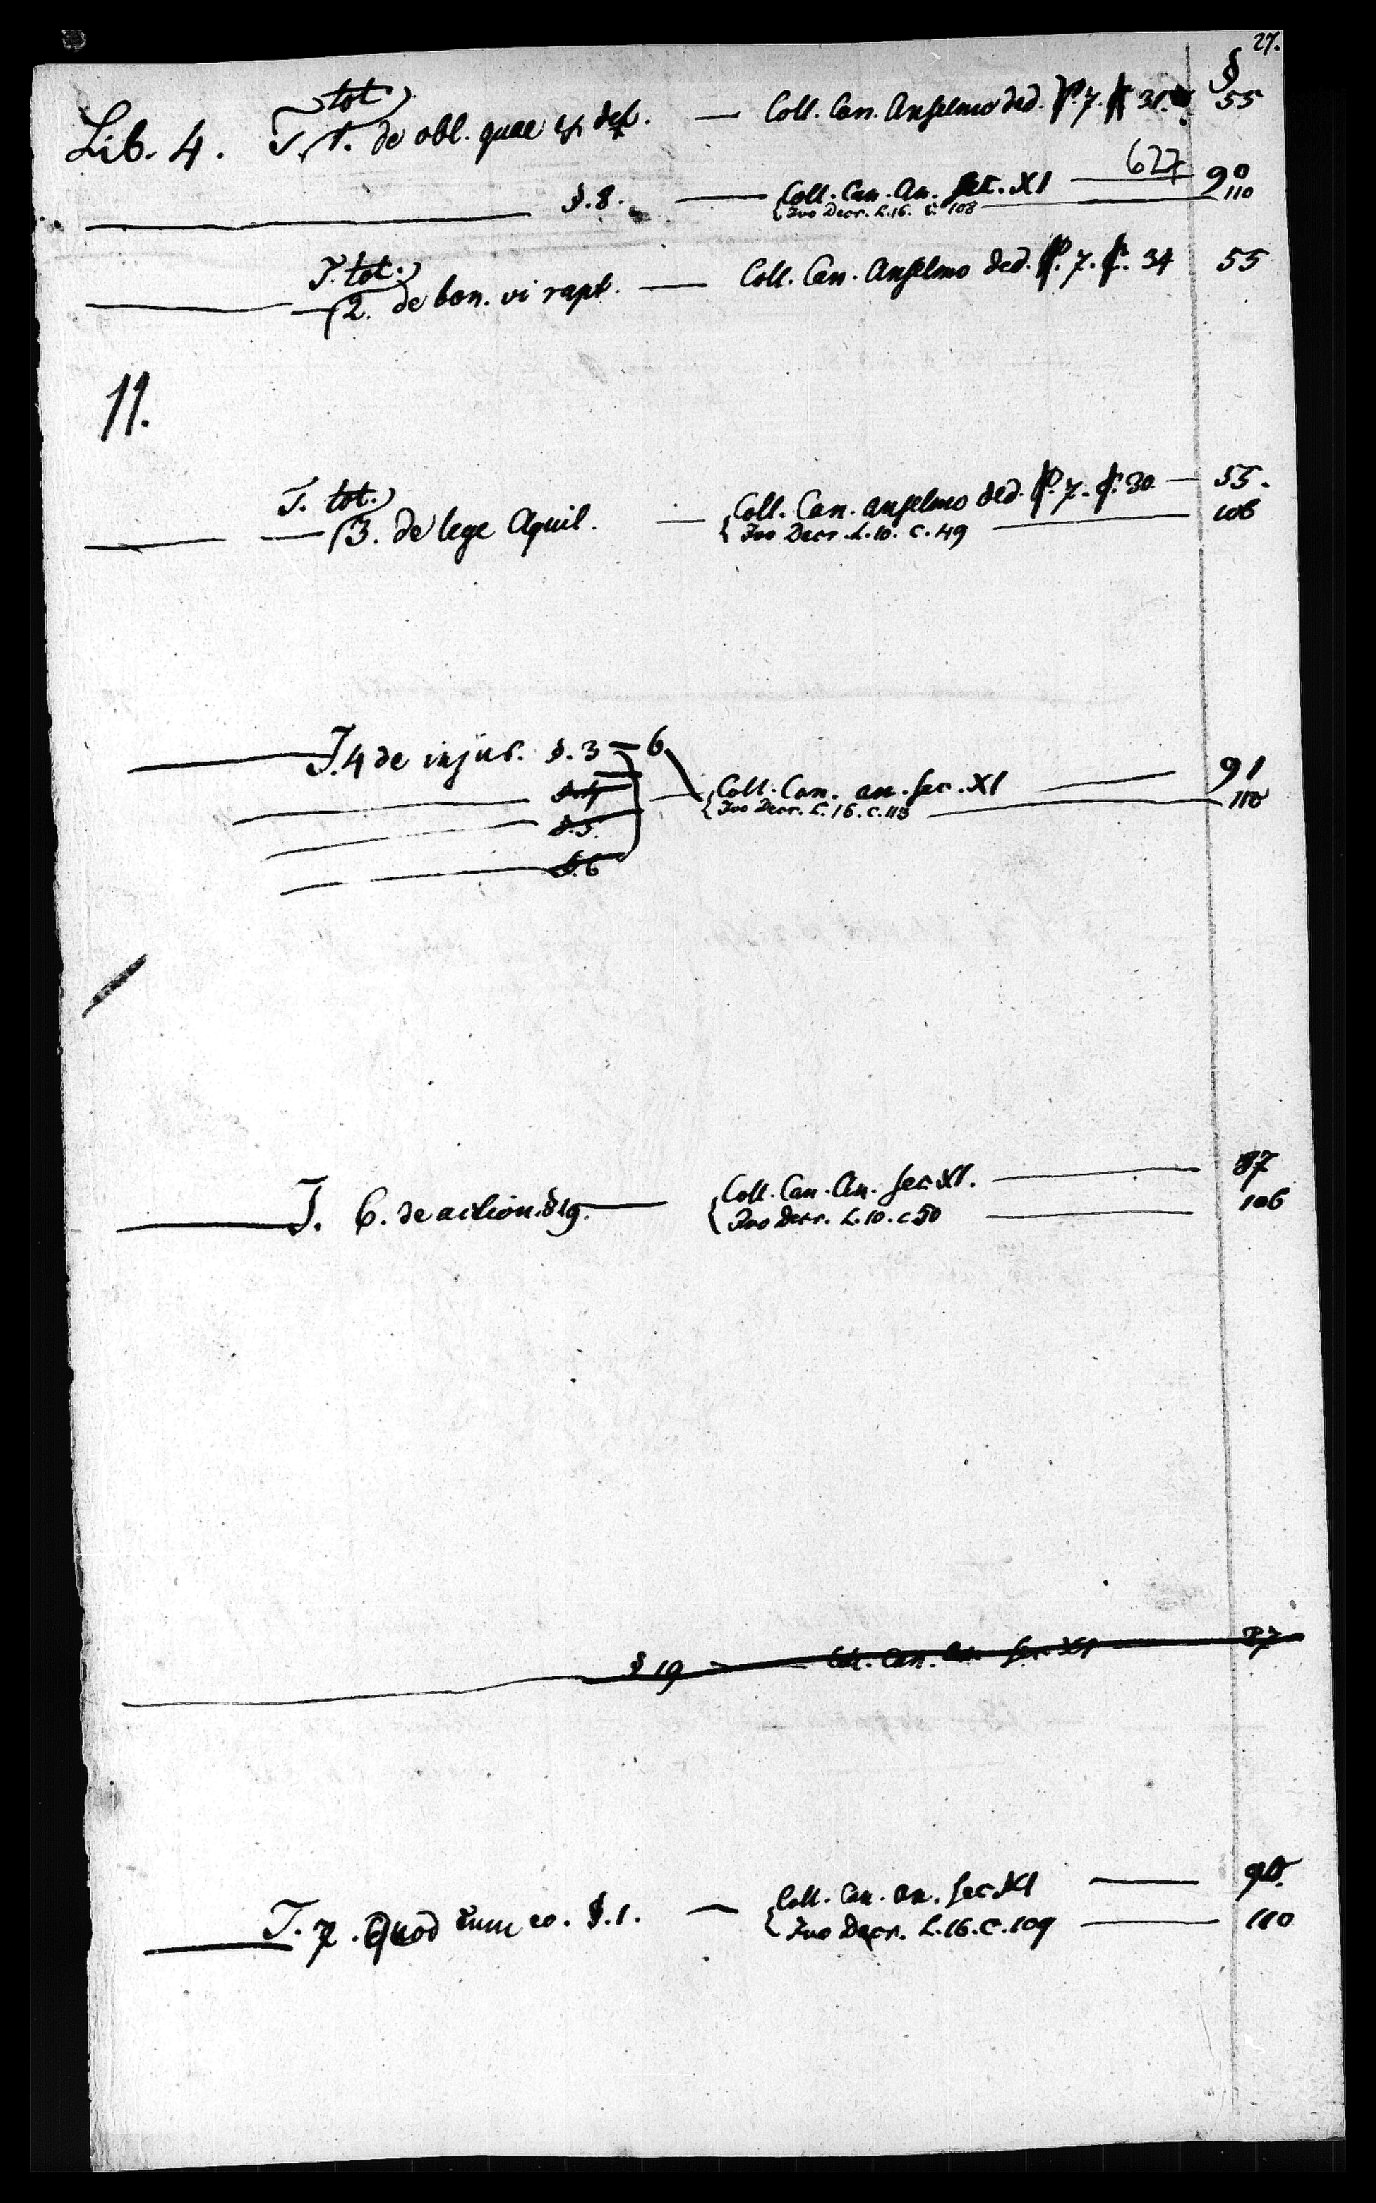 27.
§
Lib. 4. T. tot. 1. de obl. quae ex del. — Coll. Can. Anselmo ded. P. 7. C. 31. 55
627
§. 8. — Coll. Can. An. sec. XI — 90
Ivo Decr. L. 16. c. 108 — 110
T. tot. 2. de bon. vi rapt. — Coll. Can. Anselmo ded. P. 7. C. 34 55
11.
T. tot. 3. de lege Aquil. — Coll. Can. anselmo ded. P. 7. C. 30 — 55.
Ivo Decr. L. 10. c. 49 — 106
T. 4 de injur. §. 3 — 6
§. 4 — Coll. Can. an. sec. XI — 91
Ivo Decr. L. 16. c. 113 — 110
§. 5.
§. 6
T. 6. de action. § 19. — Coll. Can. An. sec. XI. — 87
Ivo Decr. L. 10. c. 50 — 106
§ 19 — Coll. Can. An. sec. XI — 87
T. 7. Quod cum eo. §. 1. — Coll. Can. an. sec. XI — 90.
Ivo Decr. L. 16. C. 109 — 110